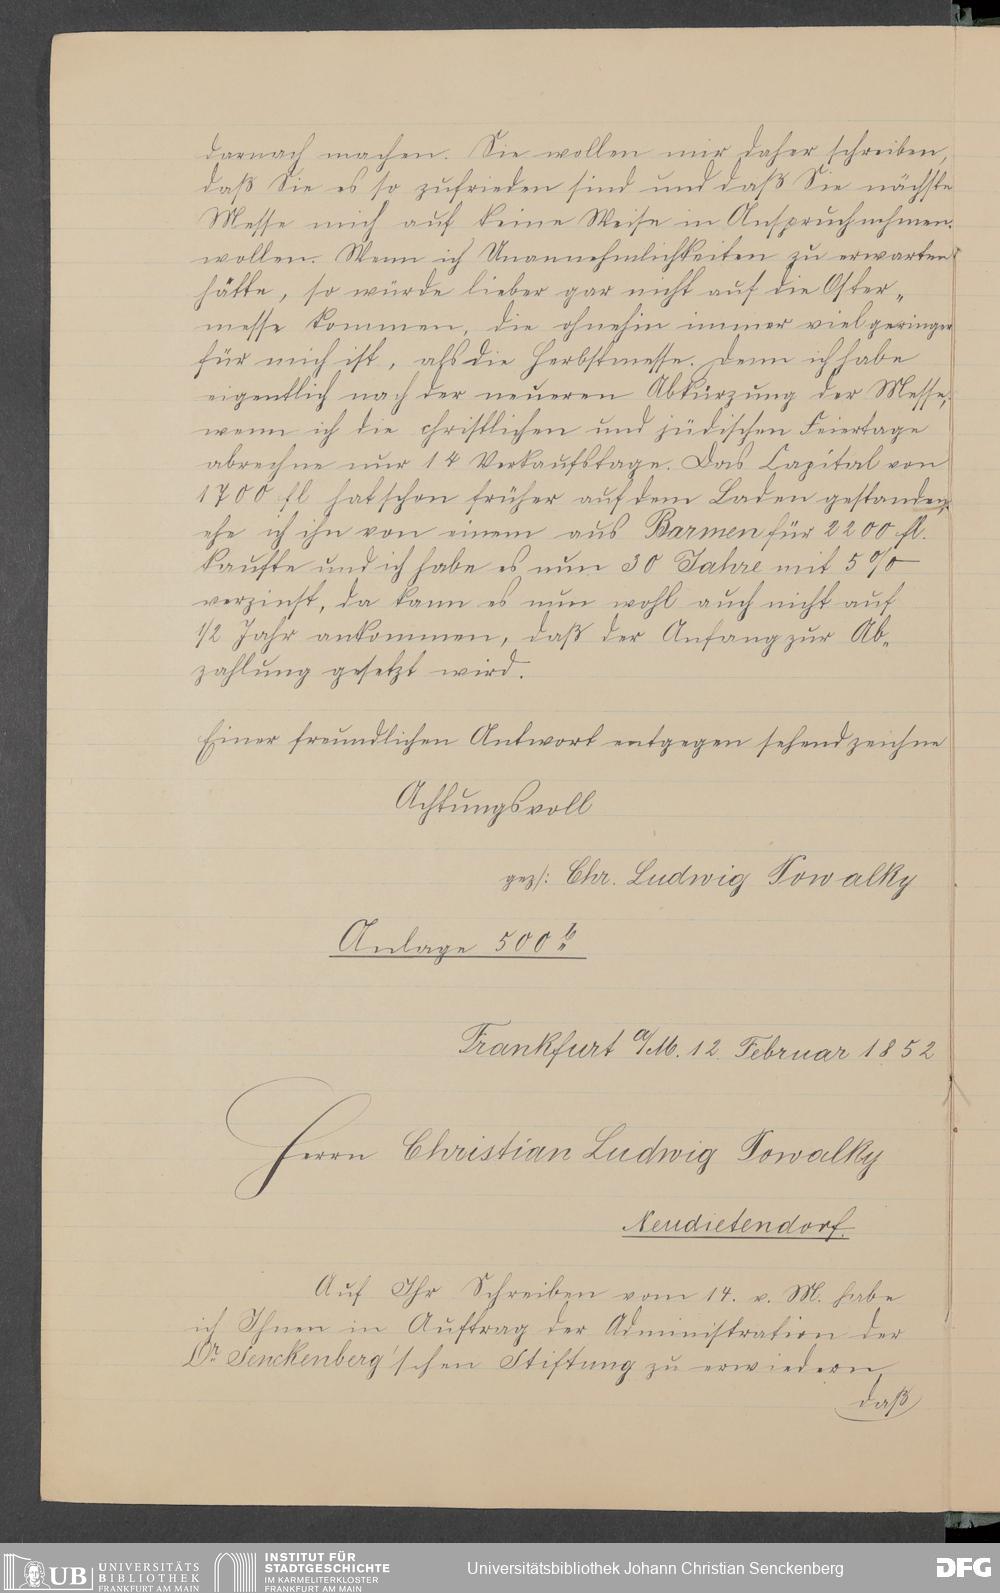 darnach machen. Sie wollen mir daher schreiben,
daß Sie es so zufrieden sind und daß Sie nächste
Messe mich auf keine Weise in Anspruch nehmen
wollen. Wenn ich Unannehmlichkeiten zu erwarten
hätte, so würde lieber gar nicht auf die Oster„
messe kommen, die ohnehin immer viel geringer
für mich ist, als die Herbstmesse. Denn ich habe
eigentlich nach der neueren Abkürzung der Messe,
wenn ich die christlichen und jüdischen Feiertage
abrechne nur 14 Verkaufstage. Das Capital von
1700 fl hat schon früher auf dem Laden gestanden,
ehe ich ihn von einem aus Barmen für 2200 fl.
kaufte und ich habe es nun 30 Jahre mit 5 %
verzinst, da kann es nun wohl auch nicht auf
1/2 Jahr ankommen, daß der Anfang zur Ab„
zahlung gesetzt wird.
Einer freundlichen Antwort entgegen sehend zeichne
Achtungsvoll
gez/: Chr. Ludwig Towalky
Anlage 500
Frankfurt a/M. 12. Februar 1852
Herrn Christian Ludwig Towalky
Neudietendorf.
Auf Ihr Schreiben vom 14. v. M. habe
ich Ihnen in Auftrag der Administration der
Dr Senckenberg'schen Stiftung zu erwiedern,
daß
UB UNIVERSITÄTS
BIBLIOTHEK
FRANKFURT AM MAIN
INSTITUT FÜR
STADTGESCHICHTE
IM KARMELITERKLOSTER
FRANKFURT AM MAIN
Universitätsbibliothek Johann Christian Senckenberg
DFG